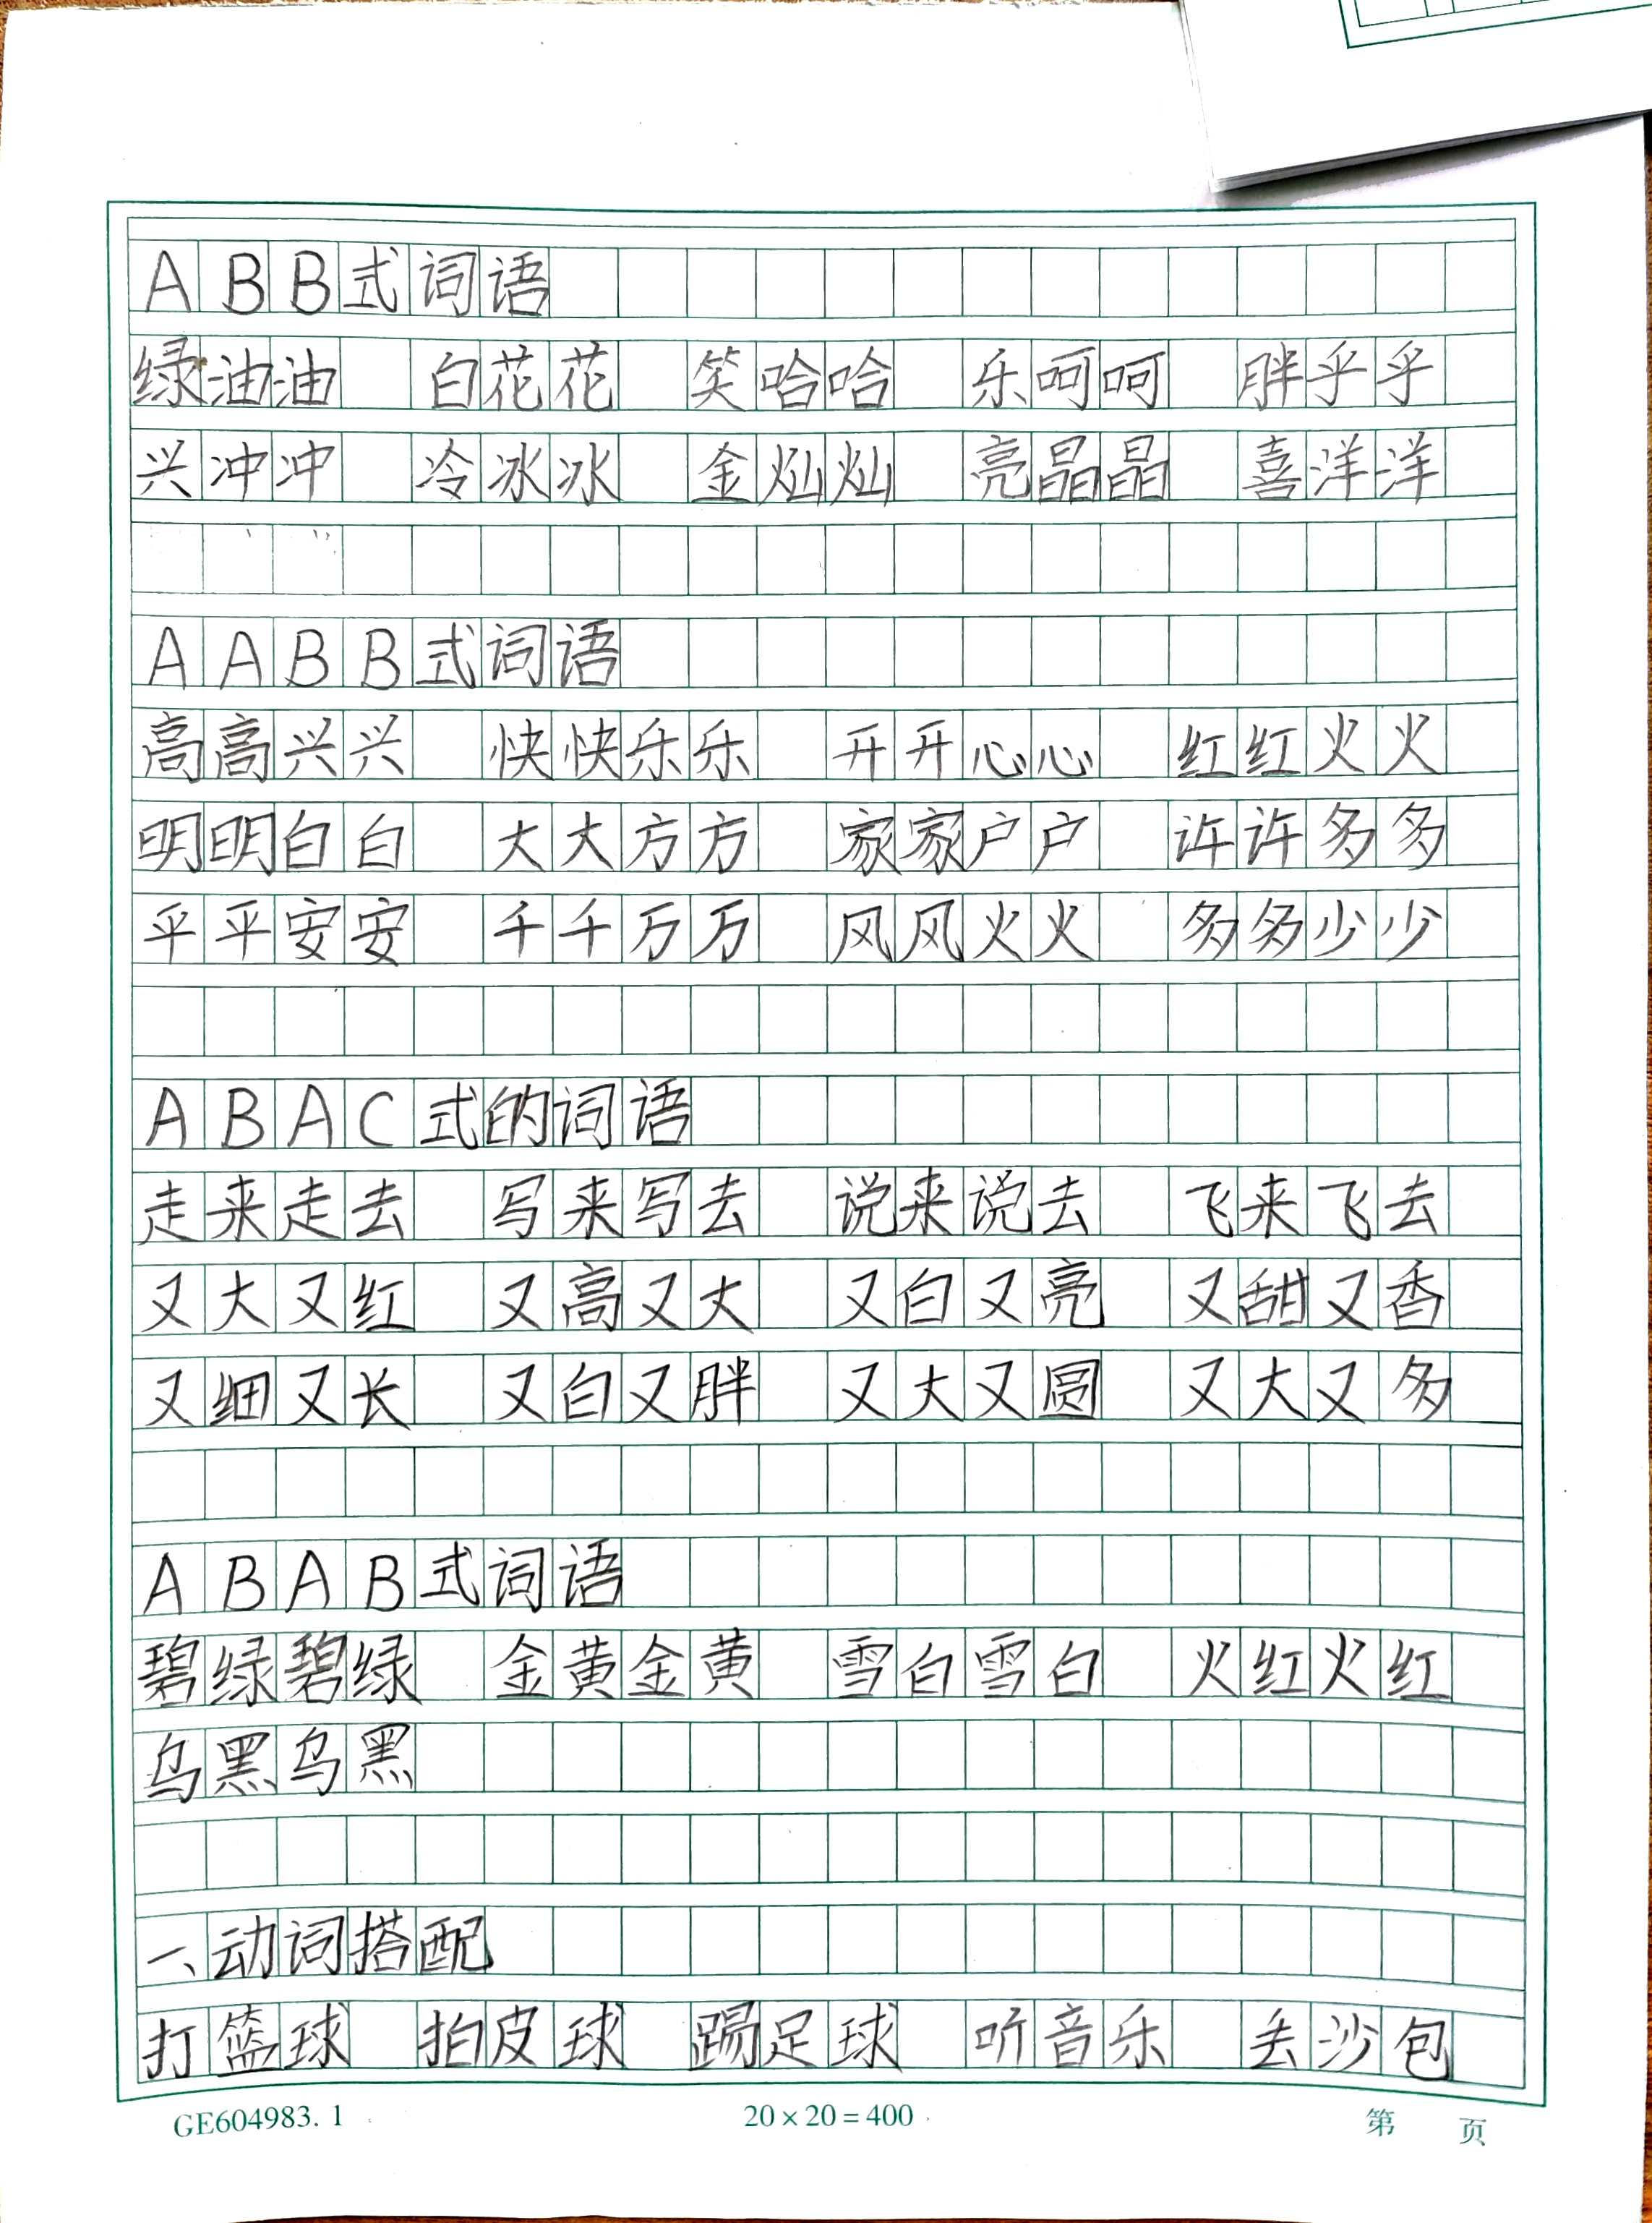 ABB式词语
绿油油 白花花 笑哈哈 乐呵呵 胖乎乎
兴冲冲 冷冰冰 金灿灿 亮晶晶 喜洋洋
AABB式词语
高高兴兴 快快乐乐 开开心心 红红火火
明明白白 大大方方 家家户户 许许多多
平平安安 千千万万 风风火火 多多少少
ABAC式的词语
走来走去 写来写去 说来说去 飞来飞去
又大又红 又高又大 又白又亮 又甜又香
又细又长 又白又胖 又大又圆 又大又多
ABAB式词语
碧绿碧绿 金黄金黄 雪白雪白 火红火红
乌黑乌黑
一、动词搭配
打篮球 拍皮球 踢足球 听音乐 丢沙包
GE604983.1 20×20=400 第 页